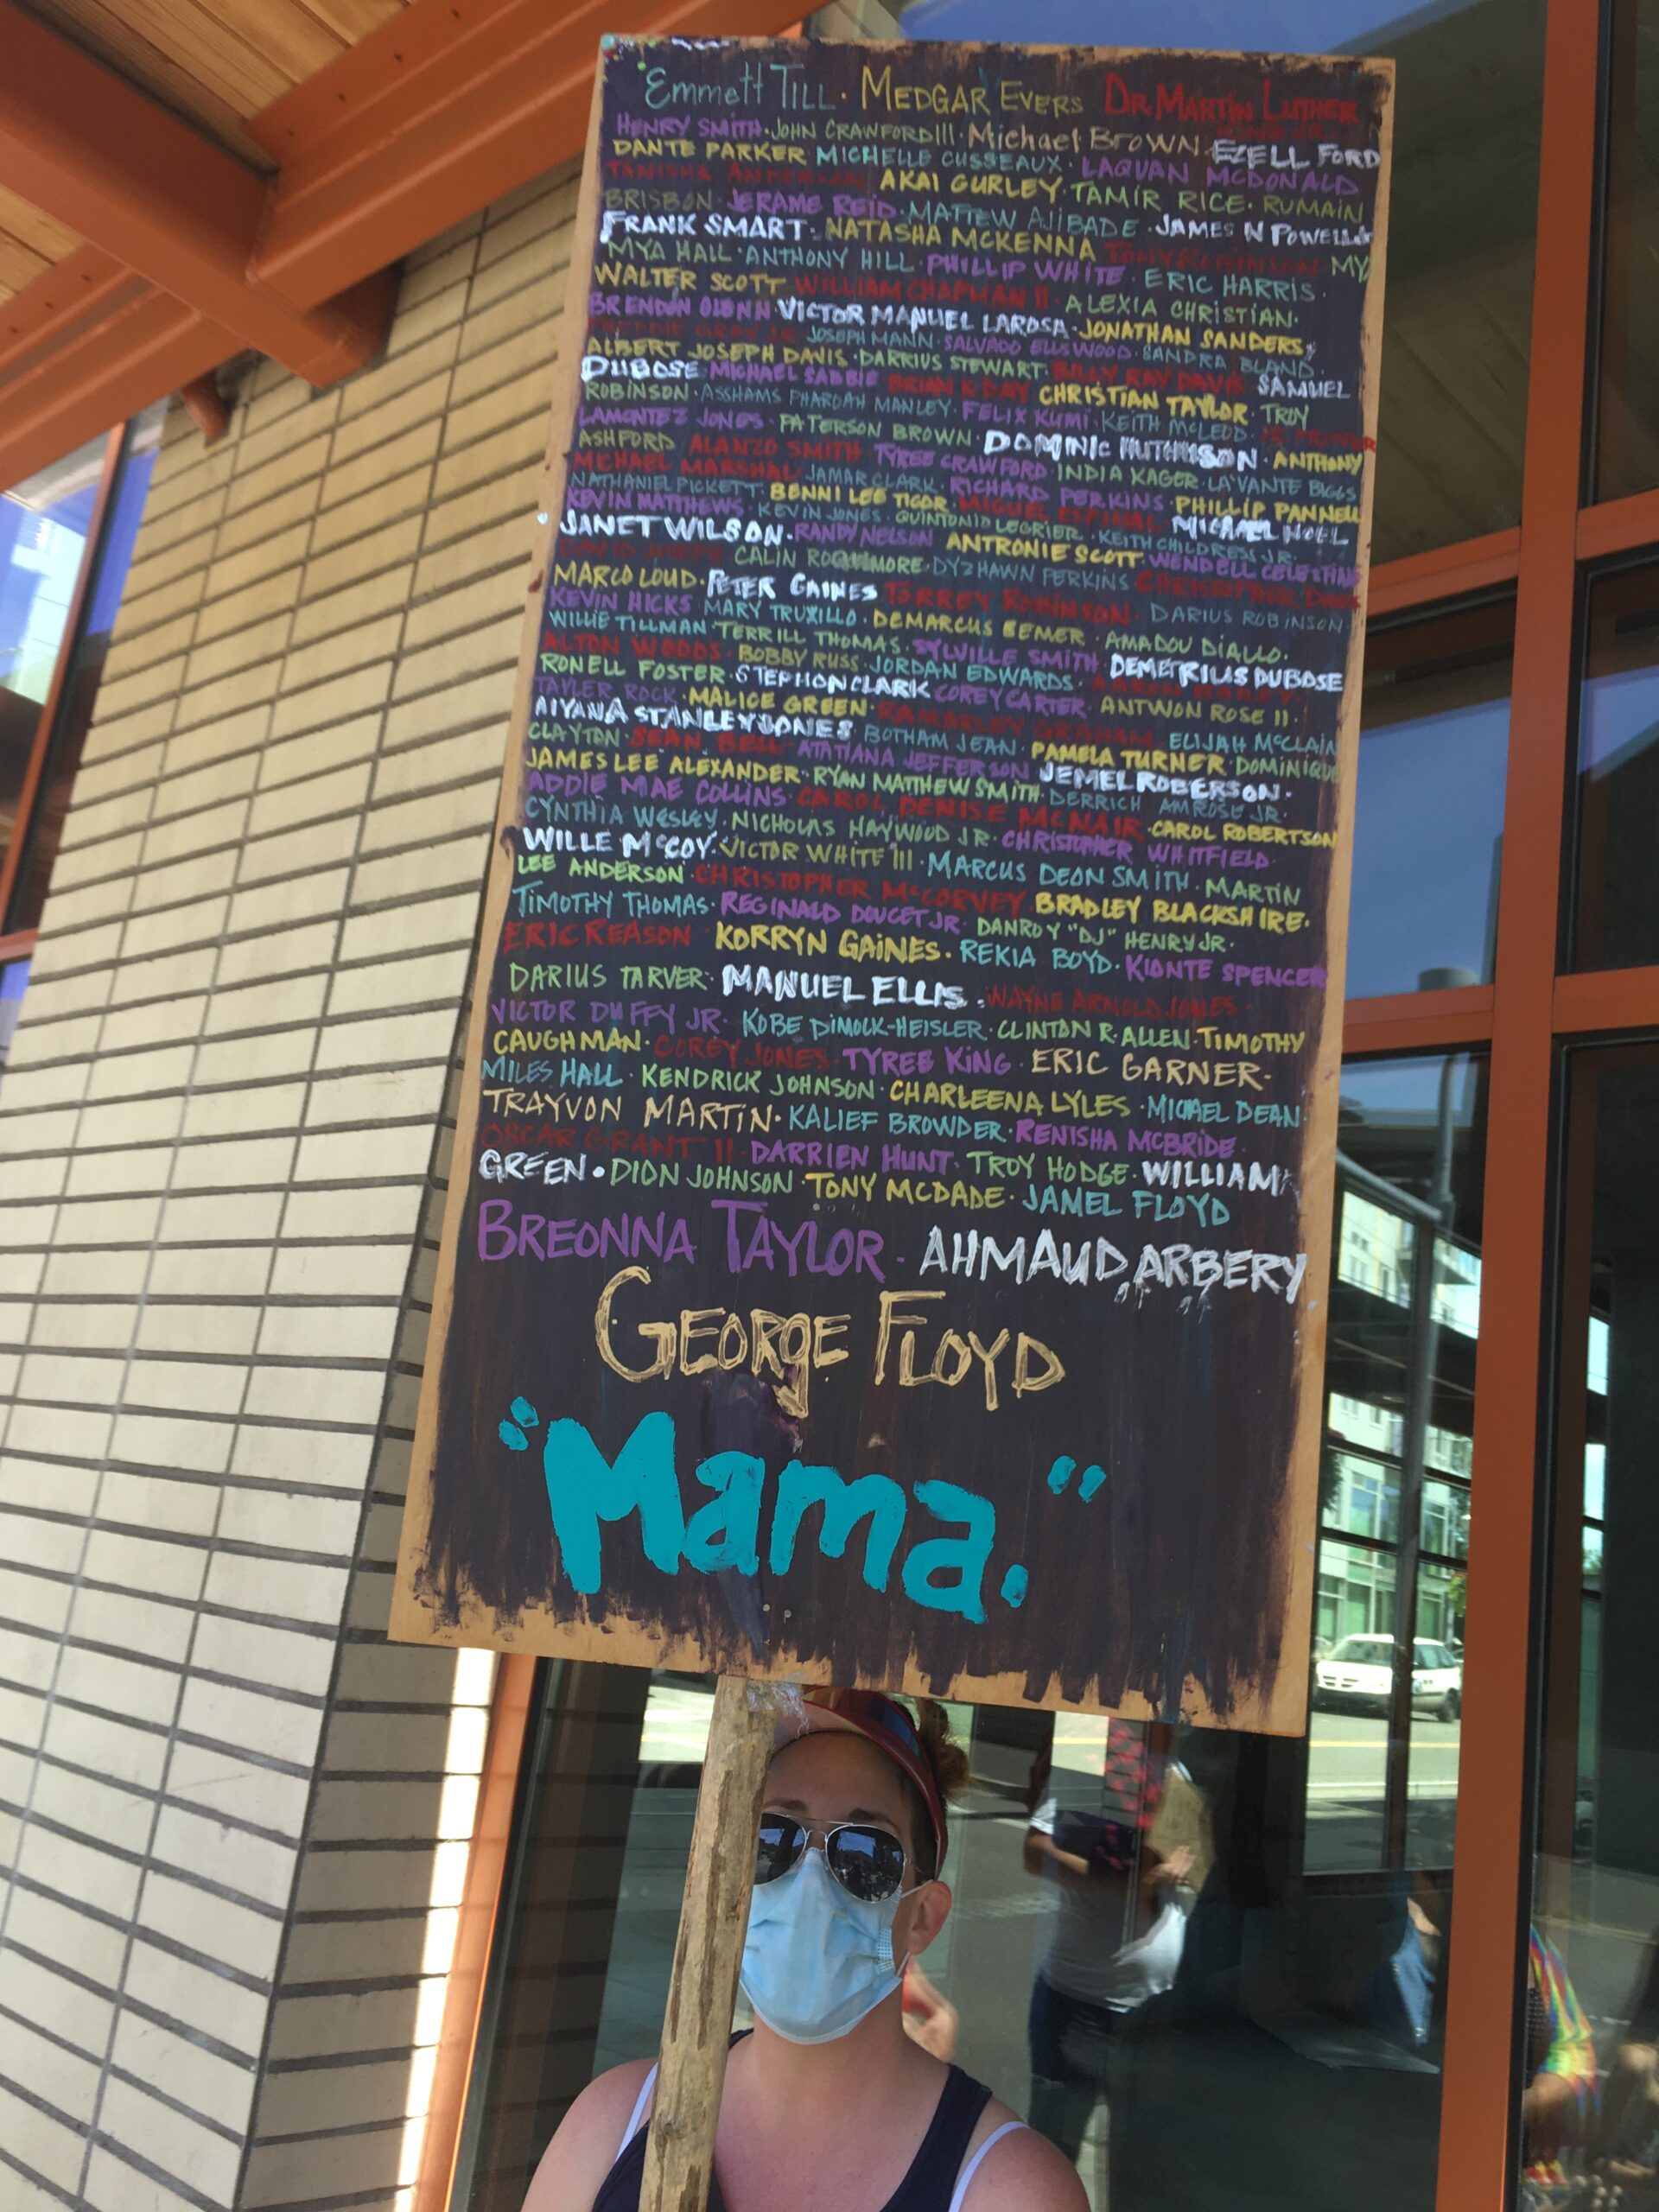 Emmett TILL · MEDGAR EVERS DR. MARTIN LUTHER
KING JR.
HENRY SMITH · JOHN CRAWFORD III · Michael BROWN · EZELL FORD
DANTE PARKER · MICHELLE CUSSEAUX · LAQUAN MCDONALD
TANISHA ANDERSON AKAI GURLEY · TAMIR RICE · RUMAIN
BRISBON · JERAME REID · MATTEW AJIBADE · JAMES N POWELL JR
FRANK SMART · NATASHA MCKENNA TONY ROBINSON · MY
MYA HALL · ANTHONY HILL · PHILLIP WHITE · ERIC HARRIS ·
WALTER SCOTT WILLIAM CHAPMAN II · ALEXIA CHRISTIAN ·
BRENDON GLENN · VICTOR MANUEL LAROSA · JONATHAN SANDERS
FREDDIE GRAY JR · JOSEPH MANN · SALVADO ELLSWOOD · SANDRA BLAND ·
ALBERT JOSEPH DAVIS · DARRIUS STEWART · BILLY RAY DAVIS SAMUEL
DUBOSE · MICHAEL SABBIE BRIAN K DAY CHRISTIAN TAYLOR · TROY
ROBINSON · ASSHAMS PHAROAH MANLEY · FELIX KUMI · KEITH MCLEOD ·
LAMONTEZ JONES · PATERSON BROWN · DOMINIC HUTCHINSON · ANTHONY
ASHFORD ALANZO SMITH · TYREE CRAWFORD · INDIA KAGER · LA'VANTE BIGGS
MICHAEL MARSHAL JAMAR CLARK · RICHARD PERKINS · PHILLIP PANNELL
NATHANIEL PICKETT · BENNI LEE TIGOR · MIGUEL ESPINAL · MICHAEL NOEL
KEVIN MATTHEWS · KEVIN JONES · QUINTONIO LEGRIER · KEITH CHILDRESS JR ·
JANET WILSON · RANDY NELSON ANTRONIE SCOTT · WENDELL CELESTINE
DAVID JOSEPH CALIN ROQUEMORE · DYZHAWN PERKINS CHRISTOPHER DAVIS
MARCO LOUD · PETER GAINES TORREY ROBINSON · DARIUS ROBINSON ·
KEVIN HICKS MARY TRUXILLO · DEMARCUS SEMER · AMADOU DIALLO ·
WILLIE TILLMAN · TERRILL THOMAS · SYLVILLE SMITH · DEMETRIUS DUBOSE
ALTON WOODS · BOBBY RUSS · JORDAN EDWARDS · AARON BAILEY ·
RONELL FOSTER · STEPHON CLARK COREY CARTER · ANTWON ROSE II ·
TAYLER ROCK · MALICE GREEN · RAMARLEY GRAHAM · ELIJAH McCLAIN
AIYANA STANLEY JONES · BOTHAM JEAN · PAMELA TURNER · DOMINIQUE
CLAYTON · SEAN BELL · ATATIANA JEFFERSON JEMEL ROBERSON ·
JAMES LEE ALEXANDER · RYAN MATTHEW SMITH · DERRICH AMROSE JR ·
ADDIE MAE COLLINS · CAROL DENISE MCNAIR · CAROL ROBERTSON
CYNTHIA WESLEY · NICHOLAS HAYWOOD JR · CHRISTOPHER WHITFIELD ·
WILLE McCOY · VICTOR WHITE III · MARCUS DEON SMITH · MARTIN
LEE ANDERSON · CHRISTOPHER McCORVEY · BRADLEY BLACKSHIRE ·
TIMOTHY THOMAS · REGINALD DOUCET JR · DANROY "DJ" HENRY JR ·
ERIC REASON · KORRYN GAINES · REKIA BOYD · KIONTE SPENCER
DARIUS TARVER · MANUEL ELLIS · WAYNE ARNOLD JONES ·
VICTOR DUFFY JR · KOBE DIMOCK-HEISLER · CLINTON R. ALLEN · TIMOTHY
CAUGHMAN · COREY JONES · TYREE KING · ERIC GARNER ·
MILES HALL · KENDRICK JOHNSON · CHARLEENA LYLES · MICHAEL DEAN ·
TRAYVON MARTIN · KALIEF BROWDER · RENISHA MCBRIDE
OSCAR GRANT II · DARRIEN HUNT · TROY HODGE · WILLIAM
GREEN · DION JOHNSON · TONY MCDADE · JAMEL FLOYD
BREONNA TAYLOR · AHMAUD ARBERY
GEORGE FLOYD
"Mama."